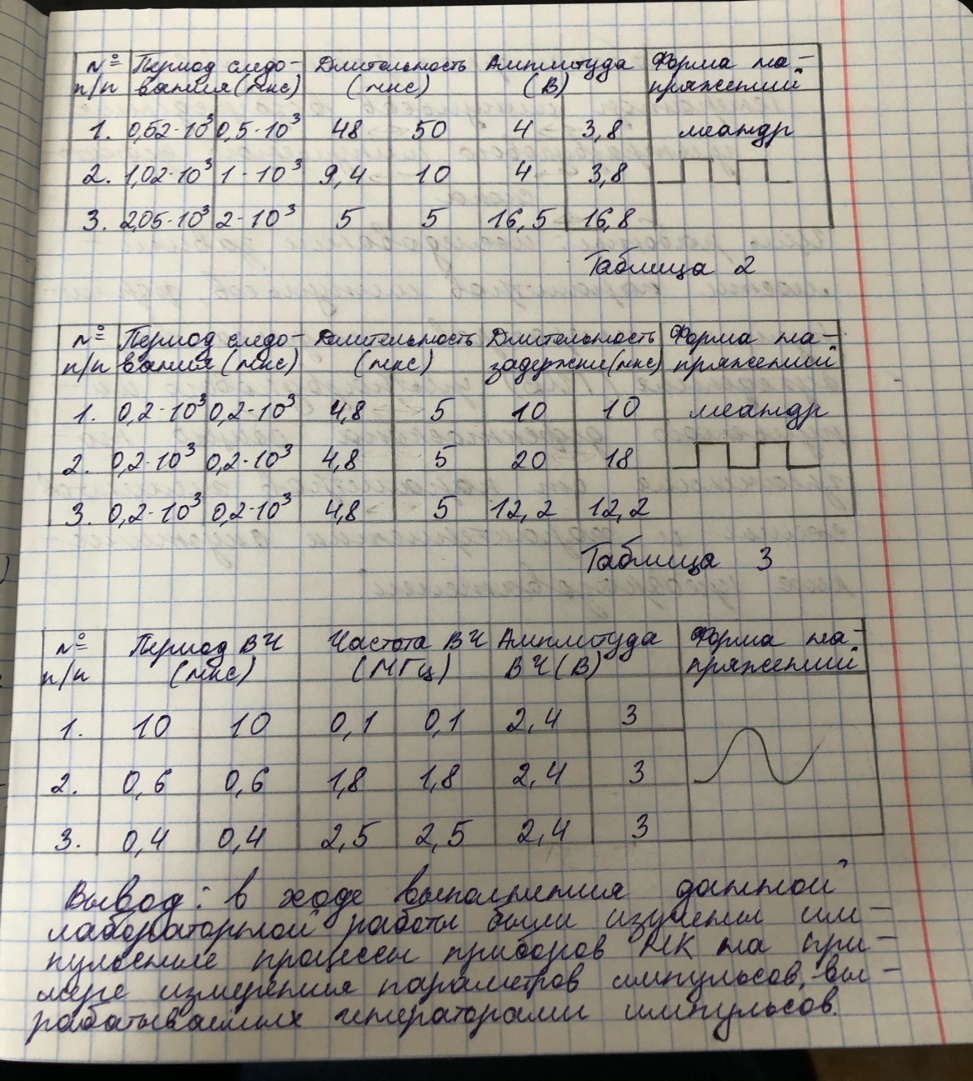 № Период следо- Длительность Амплитуда Форма на-
п/п вания (мкс) (мкс) (В) пряжений
1. 0,52·10³ 0,5·10³ 48 50 4 3,8 меандр
2. 1,02·10³ 1·10³ 9,4 10 4 3,8
3. 2,05·10³ 2·10³ 5 5 16,5 16,8
Таблица 2
№ Период следо- Длительность Длительность Форма на-
п/п вания (мкс) (мкс) задержки (мкс) пряжений
1. 0,2·10³ 0,2·10³ 4,8 5 10 10 меандр
2. 0,2·10³ 0,2·10³ 4,8 5 20 18
3. 0,2·10³ 0,2·10³ 4,8 5 12,2 12,2
Таблица 3
№ Период ВЧ Частота ВЧ Амплитуда Форма на-
п/п (мкс) (МГц) ВЧ (В) пряжений
1. 10 10 0,1 0,1 2,4 3
2. 0,6 0,6 1,8 1,8 2,4 3
3. 0,4 0,4 2,5 2,5 2,4 3
Вывод: в ходе выполнения данной
лабораторной работы были изучены им-
пульсные процессы приборов НК на при-
мере измерения параметров импульсов, вы-
рабатываемых генераторами импульсов.